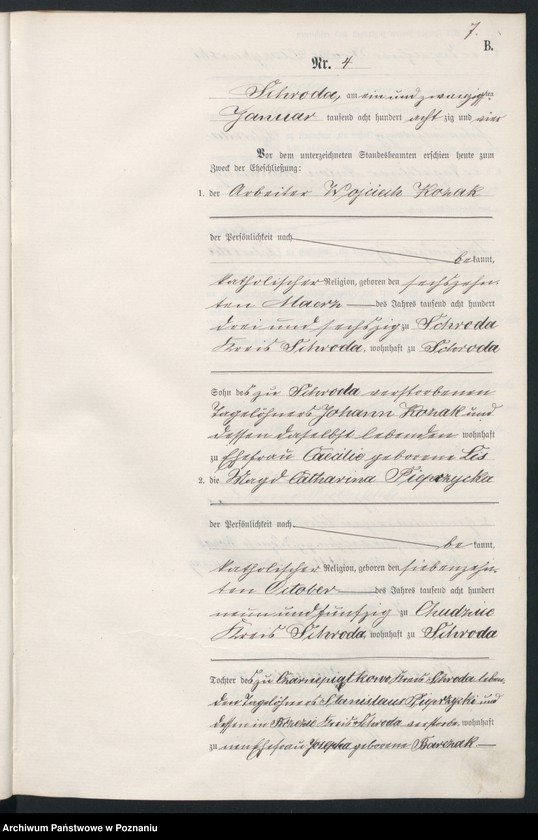 7.
B.
Nr. 4
Schroda, am ein und zwanzigsten
Januar tausend acht hundert achtzig und vier
Vor dem unterzeichneten Standesbeamten erschien heute zum
Zweck der Eheschließung:
1. der Arbeiter Wojciech Kozak
der Persönlichkeit nach
bekannt,
katholischer Religion, geboren den sechszehn-
ten Maerz des Jahres tausend acht hundert
drei und sechszig zu Schroda
Kreis Schroda, wohnhaft zu Schroda
Sohn des zu Schroda verstorbenen
Tagelöhners Johann Kozak und
dessen daselbst lebenden wohnhaft
zu Ehefrau Caecilie geborene Lis
2. die Magd Catharina Pieprzycka
der Persönlichkeit nach
bekannt,
katholischer Religion, geboren den siebenzehn-
ten October des Jahres tausend acht hundert
neun und fünfzig zu Chudzice
Kreis Schroda, wohnhaft zu Schroda
Tochter des zu Czarnepiątkowo Kreis Schroda leben-
den Tagelöhners Stanislaus Pieprzycki und
dessen in Kreis Schroda verstorbe- wohnhaft
zu nen Ehefrau Josepha geborene Barczak
Archiwum Państwowe w Poznaniu